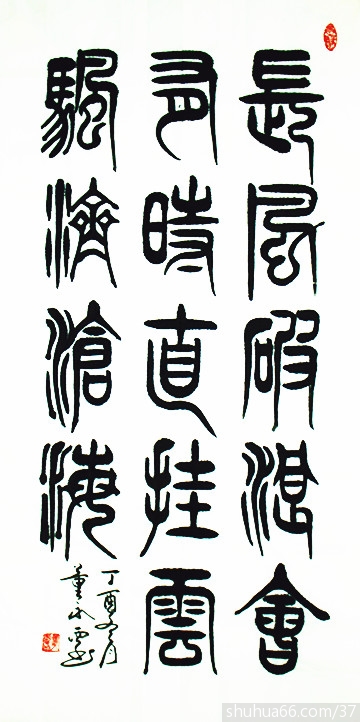 長風破浪會
有時直挂雲
颿濟滄海
丁酉月
董永
shuhua66.com/37